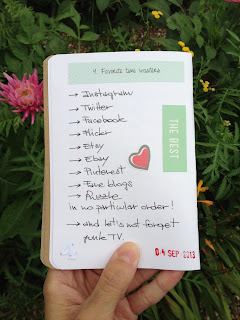 9. Favorite time wasters
→ Instagram
→ Twitter
→ Facebook
→ Flickr
→ Etsy
→ Ebay
→ Pinterest
→ Fave blogs
→ Puzzle
in no particular order!
→ and let's not forget
junk TV.
THE BEST
04 SEP 2013